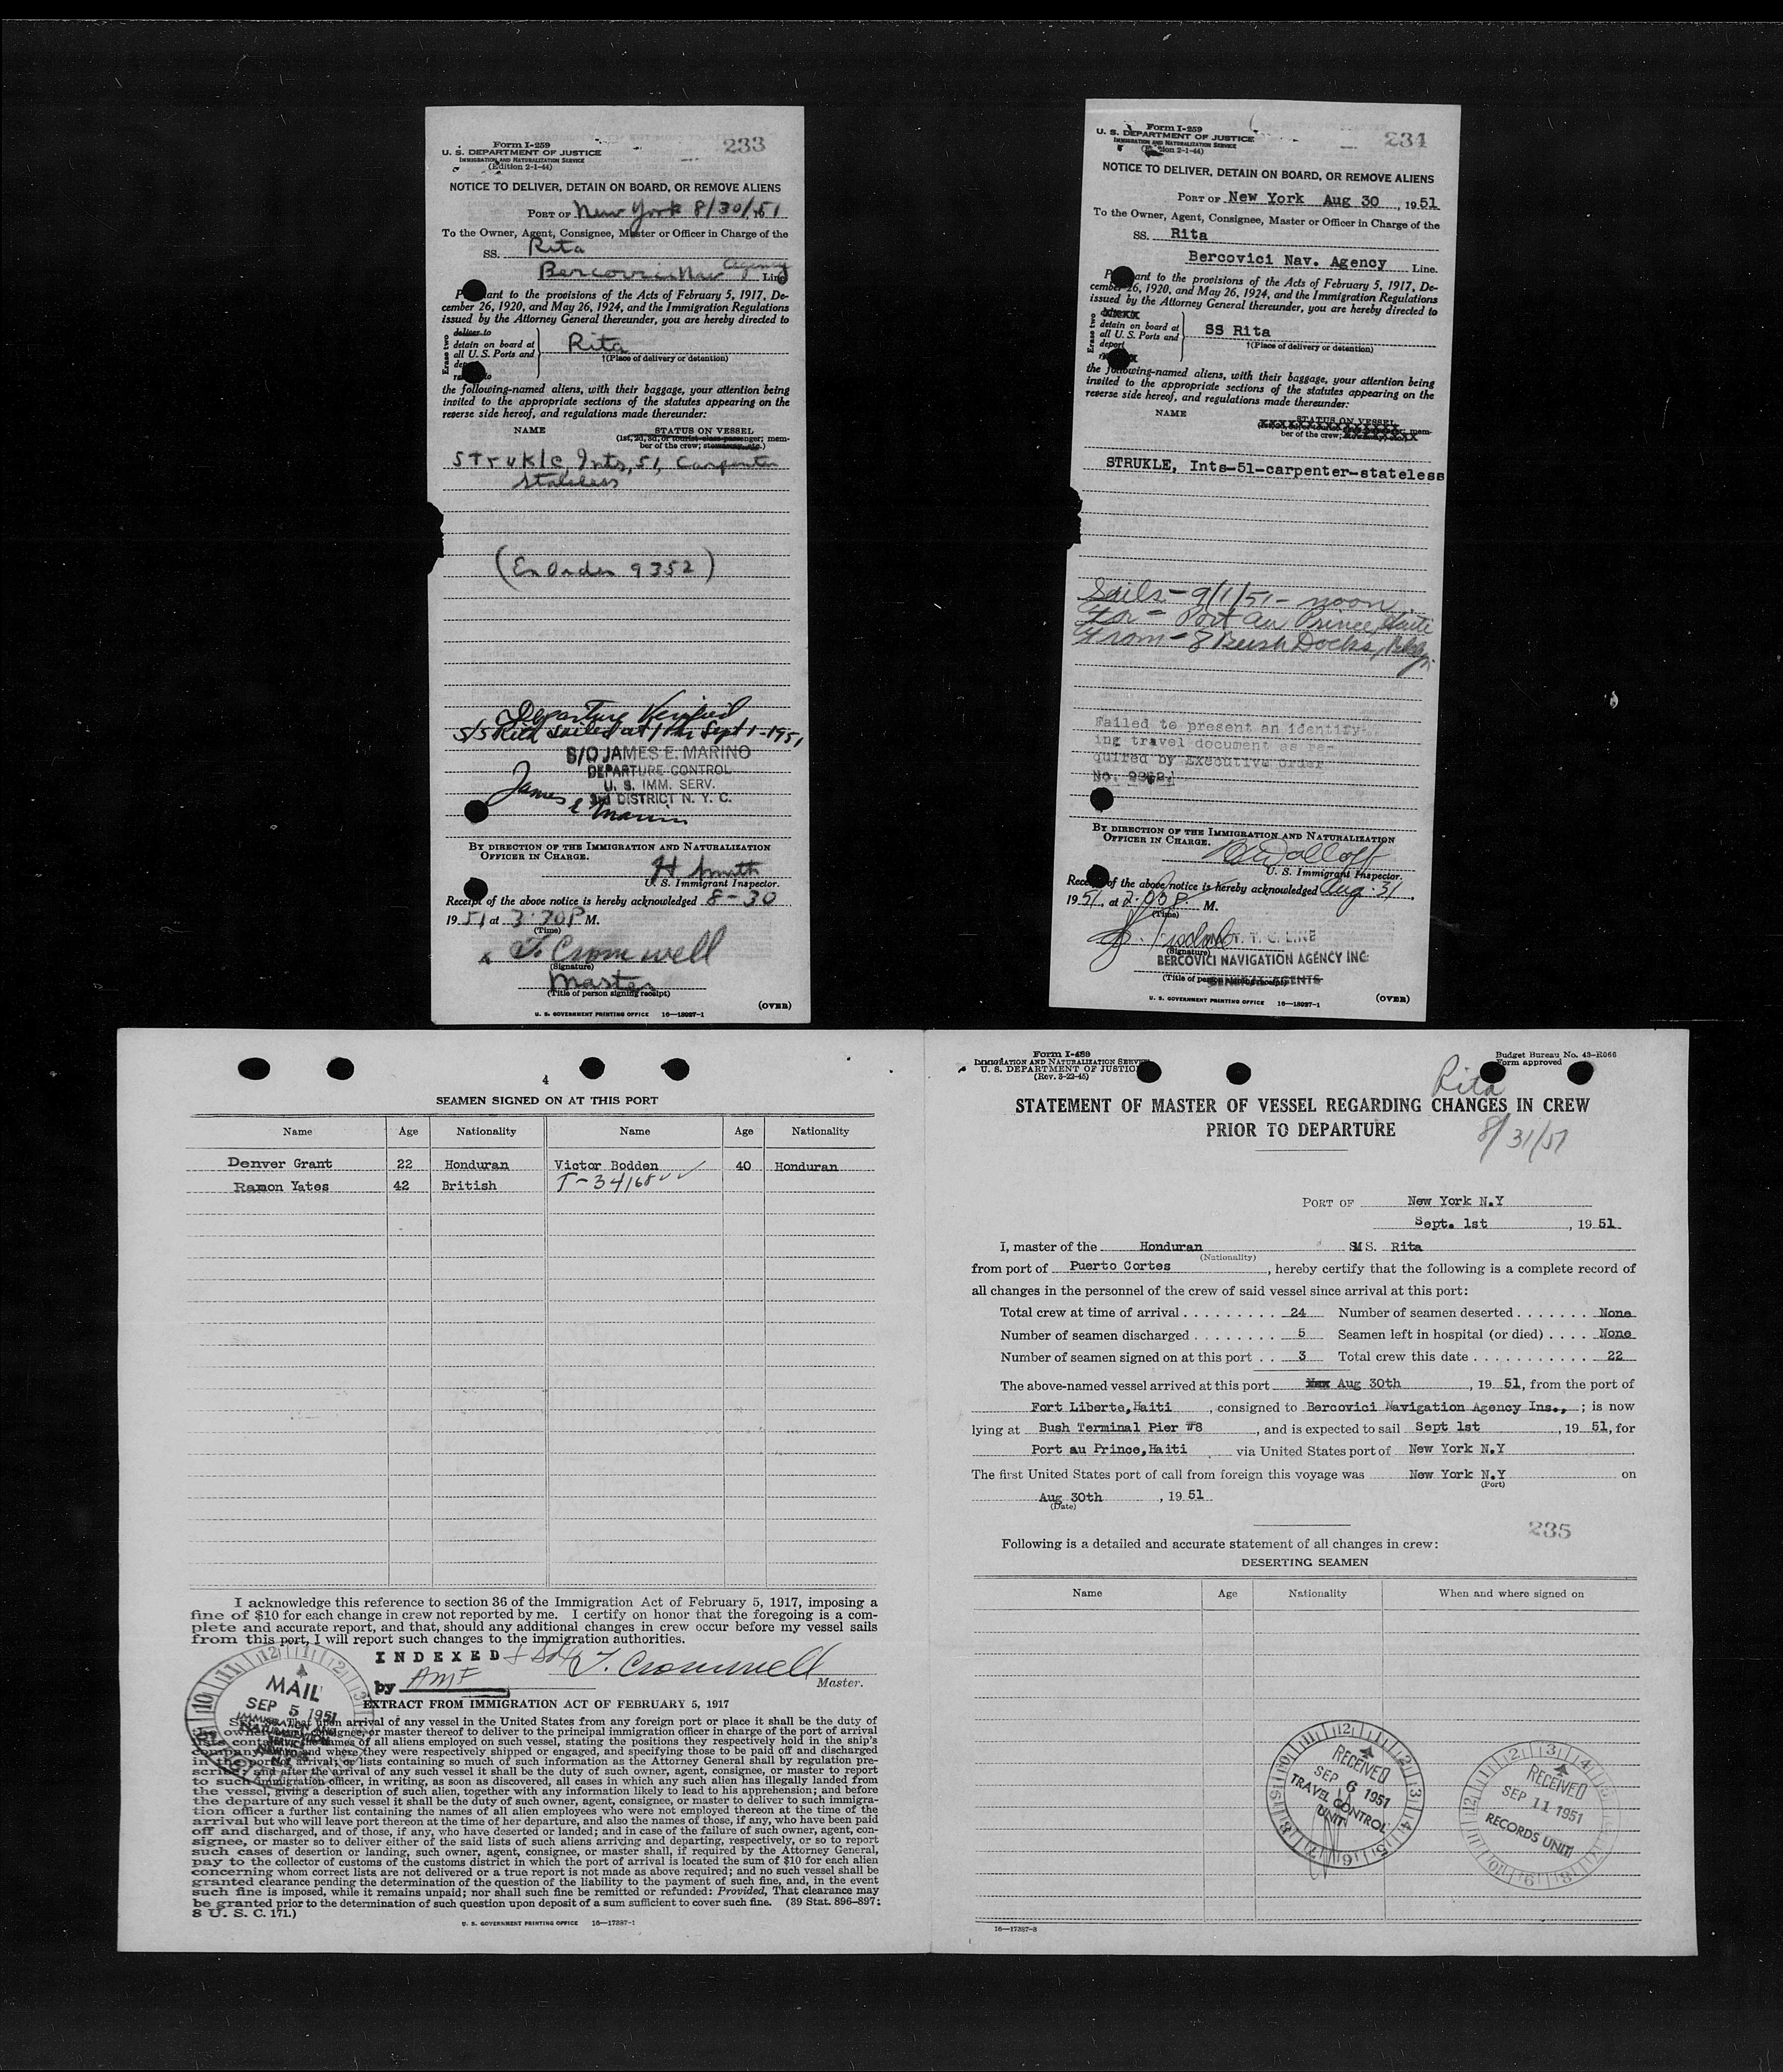 Form I-259
U. S. DEPARTMENT OF JUSTICE
IMMIGRATION AND NATURALIZATION SERVICE
(Edition 2-1-44)
233
NOTICE TO DELIVER, DETAIN ON BOARD, OR REMOVE ALIENS
PORT OF New York 8/30/1951
To the Owner, Agent, Consignee, Master or Officer in Charge of the
SS. Rita
Bercovici Nav Agency Line
Pursuant to the provisions of the Acts of February 5, 1917, De-
cember 26, 1920, and May 26, 1924, and the Immigration Regulations
issued by the Attorney General thereunder, you are hereby directed to
Erase two
deliver to
detain on board at
all U. S. Ports and
Rita
†(Place of delivery or detention)
the following-named aliens, with their baggage, your attention being
invited to the appropriate sections of the statutes appearing on the
reverse side hereof, and regulations made thereunder:
NAME STATUS ON VESSEL
(1st, 2d, 3d, or tourist class passenger; mem-
ber of the crew; stowaway, etc.)
Strukle, Ints, 51, Carpenter
Stateless
(Ex Order 9352)
Departure Verified
S/S Rita sailed at 1 PM Sept 1-1951
S/O JAMES E. MARINO
DEPARTURE CONTROL
U. S. IMM. SERV.
3rd DISTRICT N. Y. C.
James E Marino
BY DIRECTION OF THE IMMIGRATION AND NATURALIZATION
OFFICER IN CHARGE.
H Smith
U. S. Immigrant Inspector.
Receipt of the above notice is hereby acknowledged 8-30
1951 at 3:30 P M.
(Time)
x T. Cromwell
(Signature)
Master
(Title of person signing receipt)
(OVER)
U. S. GOVERNMENT PRINTING OFFICE 16—18097-1
Form I-259
U. S. DEPARTMENT OF JUSTICE
IMMIGRATION AND NATURALIZATION SERVICE
(Edition 2-1-44)
234
NOTICE TO DELIVER, DETAIN ON BOARD, OR REMOVE ALIENS
PORT OF New York Aug 30, 1951
To the Owner, Agent, Consignee, Master or Officer in Charge of the
SS. Rita
Bercovici Nav. Agency Line.
Pursuant to the provisions of the Acts of February 5, 1917, De-
cember 26, 1920, and May 26, 1924, and the Immigration Regulations
issued by the Attorney General thereunder, you are hereby directed to
Erase two
detain on board at
all U. S. Ports and
deport
SS Rita
†(Place of delivery or detention)
the following-named aliens, with their baggage, your attention being
invited to the appropriate sections of the statutes appearing on the
reverse side hereof, and regulations made thereunder:
NAME STATUS ON VESSEL
mem-
ber of the crew;
STRUKLE, Ints-51-carpenter-stateless
Sails - 9/1/51 - noon
For - Port au Prince, Haiti
From - 8 Bush Docks, Bklyn
Failed to present an identify-
ing travel document as re-
quired by Executive Order
No. 9352.
BY DIRECTION OF THE IMMIGRATION AND NATURALIZATION
OFFICER IN CHARGE.
U. S. Immigrant Inspector.
Receipt of the above notice is hereby acknowledged Aug. 31
1951, at 2:00 P. M.
(Time)
T. C. LINE
(Signature)
BERCOVICI NAVIGATION AGENCY INC.
(Title of person signing receipt)
GENERAL AGENTS
U. S. GOVERNMENT PRINTING OFFICE 16—18097-1
(OVER)
4
SEAMEN SIGNED ON AT THIS PORT
Name Age Nationality Name Age Nationality
Denver Grant 22 Honduran Victor Bodden 40 Honduran
Ramon Yates 42 British T-34168
I acknowledge this reference to section 36 of the Immigration Act of February 5, 1917, imposing a
fine of $10 for each change in crew not reported by me. I certify on honor that the foregoing is a com-
plete and accurate report, and that, should any additional changes in crew occur before my vessel sails
from this port, I will report such changes to the immigration authorities.
INDEXED
by AMF
T. Cromwell
Master.
MAIL
SEP 5 1951
IMMIGRATION AND
NATURALIZATION
SERVICE
NEW YORK
EXTRACT FROM IMMIGRATION ACT OF FEBRUARY 5, 1917
SEC. 36. That upon arrival of any vessel in the United States from any foreign port or place it shall be the duty of
the owner, agent, consignee, or master thereof to deliver to the principal immigration officer in charge of the port of arrival
lists containing the names of all aliens employed on such vessel, stating the positions they respectively hold in the ship's
company, when and where they were respectively shipped or engaged, and specifying those to be paid off and discharged
in the port of arrival; or lists containing so much of such information as the Attorney General shall by regulation pre-
scribe; and after the arrival of any such vessel it shall be the duty of such owner, agent, consignee, or master to report
to such immigration officer, in writing, as soon as discovered, all cases in which any such alien has illegally landed from
the vessel, giving a description of such alien, together with any information likely to lead to his apprehension; and before
the departure of any such vessel it shall be the duty of such owner, agent, consignee, or master to deliver to such immigra-
tion officer a further list containing the names of all alien employees who were not employed thereon at the time of the
arrival but who will leave port thereon at the time of her departure, and also the names of those, if any, who have been paid
off and discharged, and of those, if any, who have deserted or landed; and in case of the failure of such owner, agent, con-
signee, or master so to deliver either of the said lists of such aliens arriving and departing, respectively, or so to report
such cases of desertion or landing, such owner, agent, consignee, or master shall, if required by the Attorney General,
pay to the collector of customs of the customs district in which the port of arrival is located the sum of $10 for each alien
concerning whom correct lists are not delivered or a true report is not made as above required; and no such vessel shall be
granted clearance pending the determination of the question of the liability to the payment of such fine, and, in the event
such fine is imposed, while it remains unpaid; nor shall such fine be remitted or refunded: Provided, That clearance may
be granted prior to the determination of such question upon deposit of a sum sufficient to cover such fine. (39 Stat. 896-897;
8 U. S. C. 171.)
U. S. GOVERNMENT PRINTING OFFICE 16—17387-1
Form I-489
IMMIGRATION AND NATURALIZATION SERVICE
U. S. DEPARTMENT OF JUSTICE
(Rev. 3-22-45)
Budget Bureau No. 43-R066
Form approved
Rita
STATEMENT OF MASTER OF VESSEL REGARDING CHANGES IN CREW
PRIOR TO DEPARTURE
8/31/51
PORT OF New York N.Y
Sept. 1st, 1951
I, master of the Honduran SMS. Rita
(Nationality)
from port of Puerto Cortes, hereby certify that the following is a complete record of
all changes in the personnel of the crew of said vessel since arrival at this port:
Total crew at time of arrival . . . . . . . . . 24 Number of seamen deserted . . . . . . . None
Number of seamen discharged . . . . . . . . 5 Seamen left in hospital (or died) . . . . None
Number of seamen signed on at this port . . 3 Total crew this date . . . . . . . . . . . 22
The above-named vessel arrived at this port Aug 30th, 1951, from the port of
Fort Liberte,Haiti, consigned to Bercovici Navigation Agency Ins.,; is now
lying at Bush Terminal Pier #8, and is expected to sail Sept 1st, 1951, for
Port au Prince,Haiti via United States port of New York N.Y
The first United States port of call from foreign this voyage was New York N.Y on
(Port)
Aug 30th, 1951
(Date)
235
Following is a detailed and accurate statement of all changes in crew:
DESERTING SEAMEN
Name Age Nationality When and where signed on
RECEIVED
SEP 6 1951
TRAVEL CONTROL
UNIT
RECEIVED
SEP 11 1951
RECORDS UNIT
16—17387-3